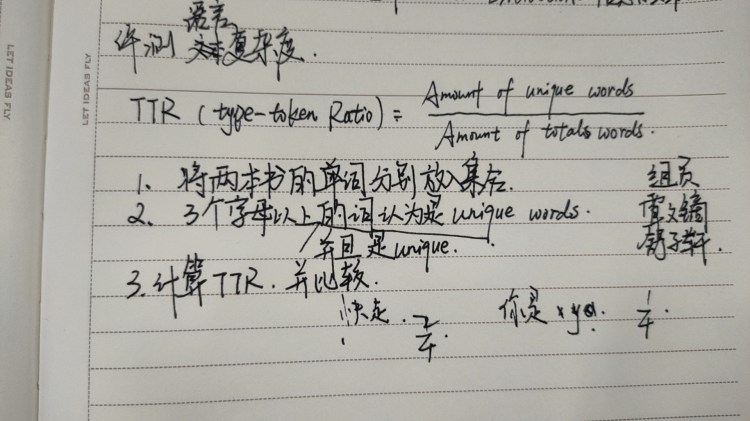 LET IDEAS FLY
LET IDEAS FLY
语言
评测 文本复杂度.
TTR (type-token Ratio) = Amount of unique words
Amount of totals words.
1. 将两本书的单词分别放入集合. 组员
2. 3个字母以上的词认为是 unique words.
并且是unique.
3. 计算TTR. 并比较.
快走. 2/4. 你是 1/4.